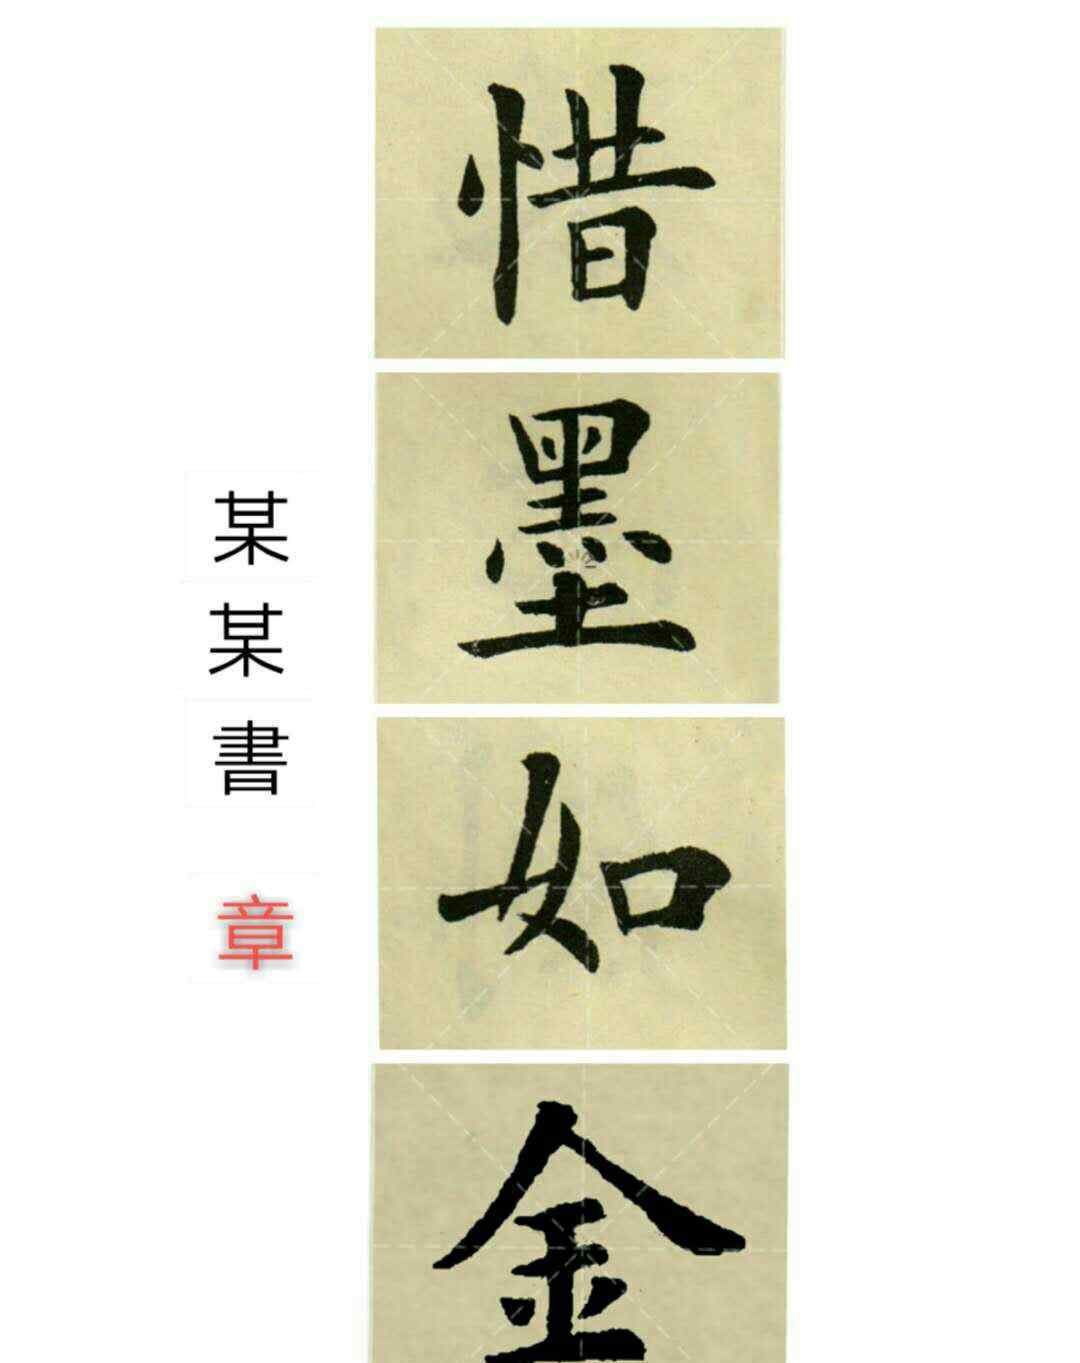 惜墨如金
某某書
章